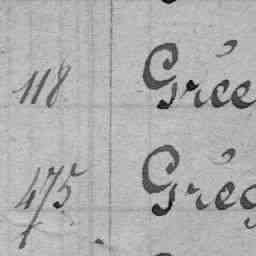 118 Grée
475. Grég